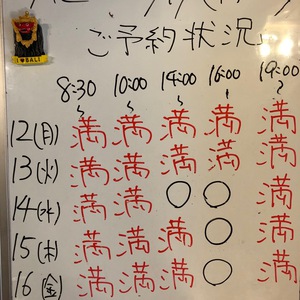 ご予約状況
I ♥ BALI
8:30 10:00 14:00 16:00 19:00
〜 〜 〜 〜 〜
12(月) 満 満 満 満 満
13(火) 満 満 満 満 満
14(水) 満 満 ○ ○ 満
15(木) 満 満 満 ○ 満
16(金) 満 満 満 ○ 満